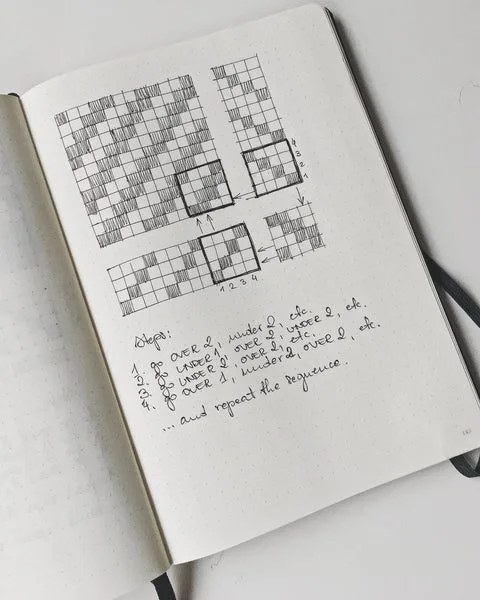 4
3
2
1
1 2 3 4
Steps:
1. go OVER 2, under 2, etc.
2. go UNDER 1, OVER 2, UNDER 2, etc.
3. go UNDER 2, OVER 2, etc.
4. go OVER 1, under 2, OVER 2, etc.
... and repeat the sequence.